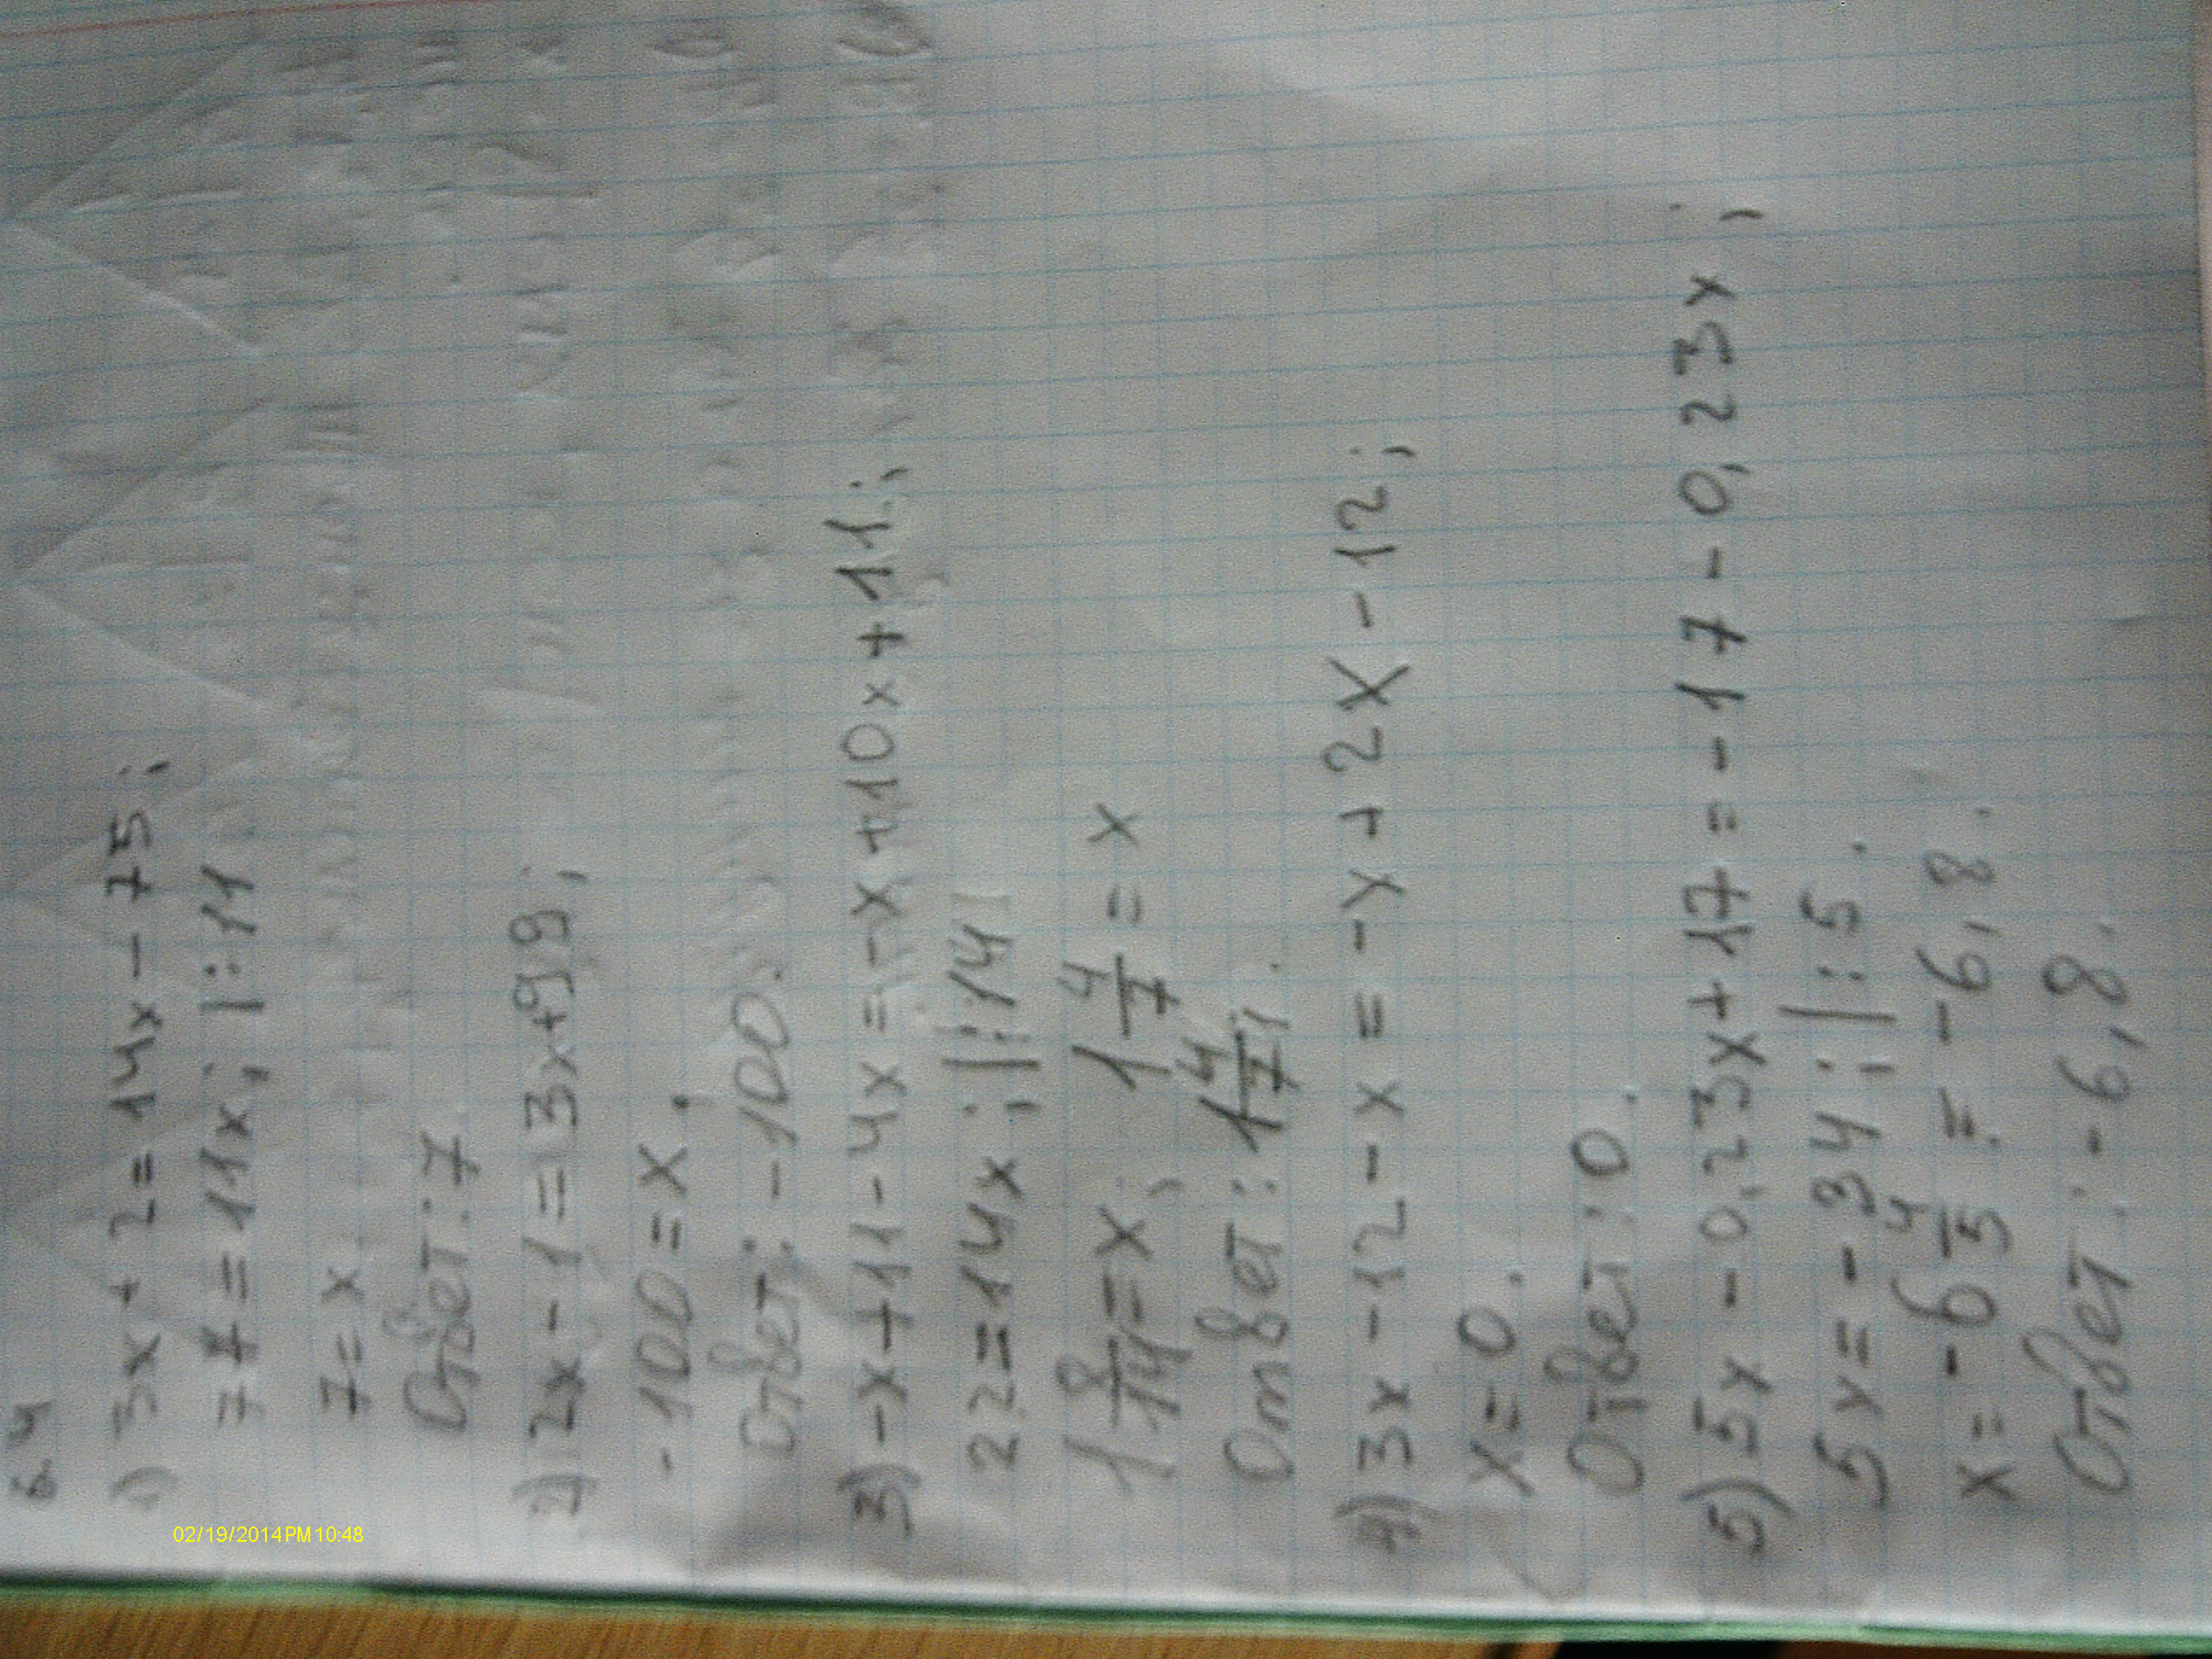 6.4
1) 3x + 2 = 14x - 75;
77 = 11x; |:11
7 = x
Ответ: 7
2) 2x - 1 = 3x + 99;
-100 = x.
Ответ: -100.
3) -x + 11 - 4x = -x + 10x + 11;
22 = 14x; |:14
1 8/14 = x; 1 4/7 = x
Ответ: 1 4/7.
4) 3x - 12 - x = -x + 2x - 12;
x = 0.
Ответ: 0.
5) 5x - 0,23x + 17 = -17 - 0,23x;
5x = -34; |:5.
x = -6 4/5 = -6,8.
Ответ: -6,8.
02/19/2014PM10:48